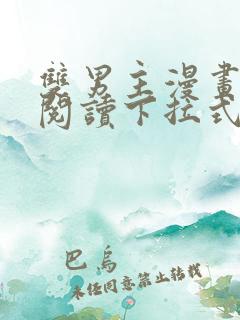 雙男主漫畫
閱讀下拉式
巴烏
未經同意禁止轉載